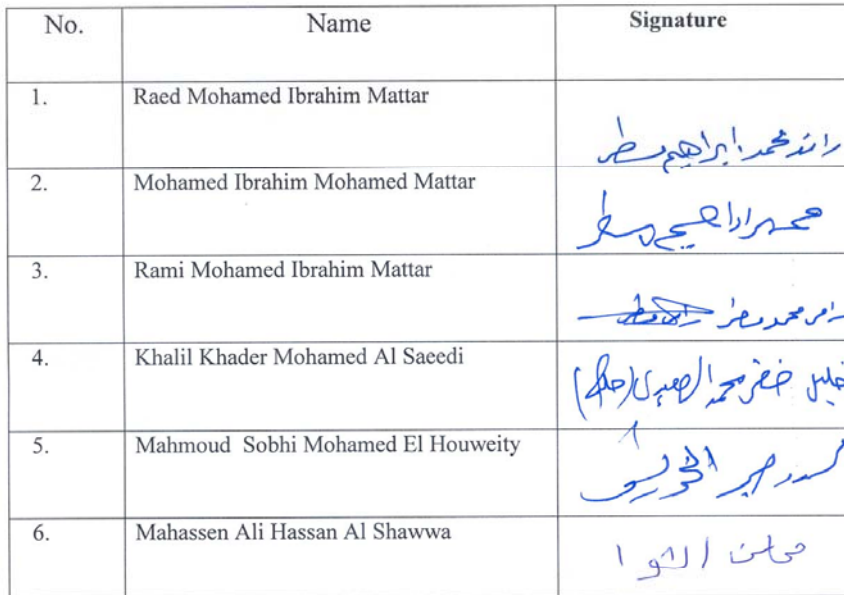 No. Name Signature
1. Raed Mohamed Ibrahim Mattar رائد محمد ابراهيم مطر
2. Mohamed Ibrahim Mohamed Mattar محمد ابراهيم مطر
3. Rami Mohamed Ibrahim Mattar رامي محمد مطر
4. Khalil Khader Mohamed Al Saeedi خليل خضر محمد
5. Mahmoud Sobhi Mohamed El Houweity
6. Mahassen Ali Hassan Al Shawwa محاسن الشوا